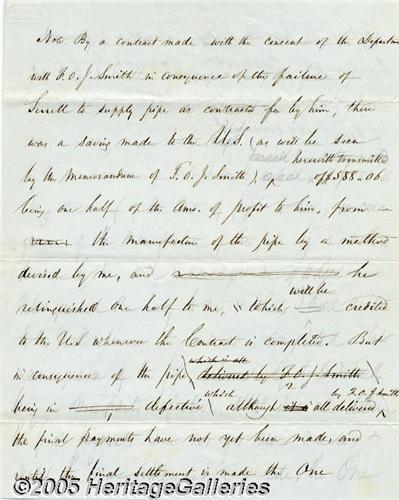 Note. By a contract made with the consent of the Departmen
with F. O. J. Smith in consequence of the failure of
Serrell to supply pipe as contracted for by him, there
was a saving made to the U.S. (as will be seen
herewith transmitted
by the Memorandum of F. O. J. Smith), of $588-06
being one half of the Amt. of profit to him, from
the manufacture of the pipe by a method
devised by me, and he
will be
relinquished one half to me, which credited
to the U S whenever the Contract is completed. But
which is all
in consequence of the pipe delivered by F. O. J. Smith
which by F. O. J Smith
being in defective although it is all delivered
the final payments have not yet been made, and
until the final settlement is made the One
©2005 HeritageGalleries